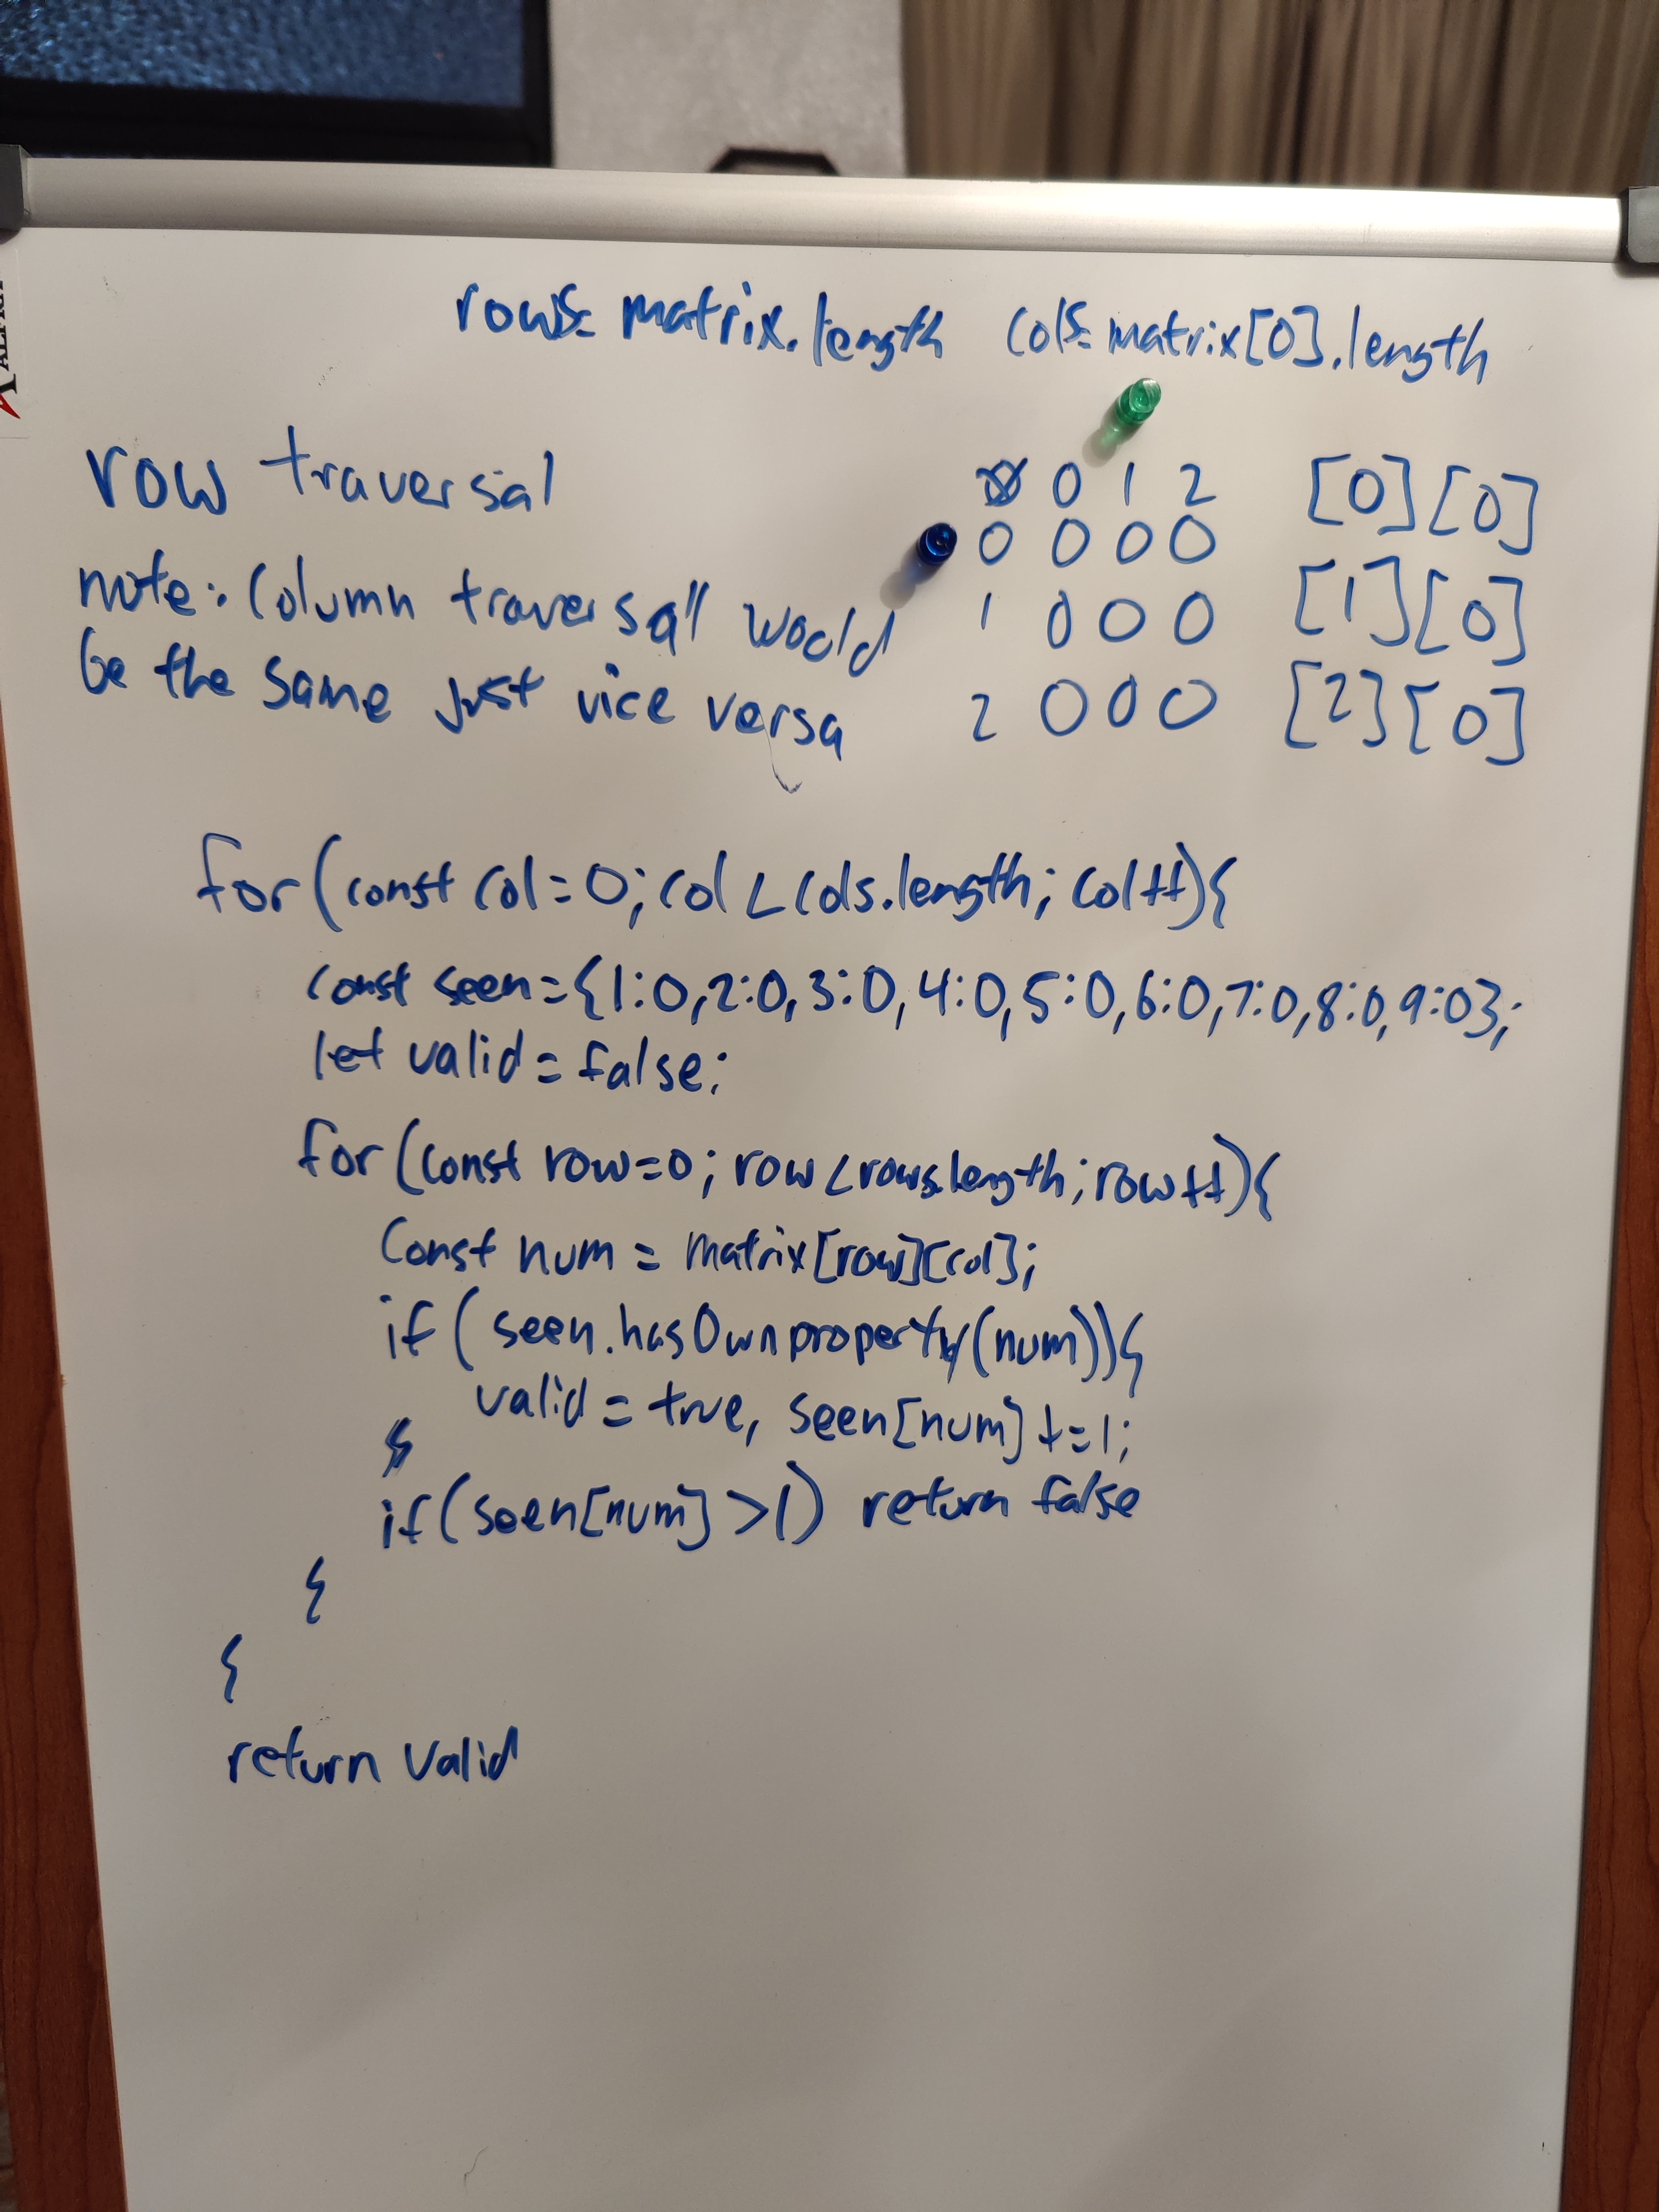 rows= matrix.length cols= matrix[0].length
row traversal
note: Column traversall would
be the same just vice versa
0 1 2 [0][0]
0 0 0 0
1 0 0 0 [1][0]
2 0 0 0 [2][0]
for (const col=0; col < cols.length; col++){
const seen={1:0,2:0,3:0,4:0,5:0,6:0,7:0,8:0,9:0};
let valid = false;
for (const row=0; row < rows.length; row++){
Const num = matrix[row][col];
if (seen.hasOwnproperty(num)){
valid = true, seen[num] +=1;
}
if(seen[num] >1) return false
{
{
return valid